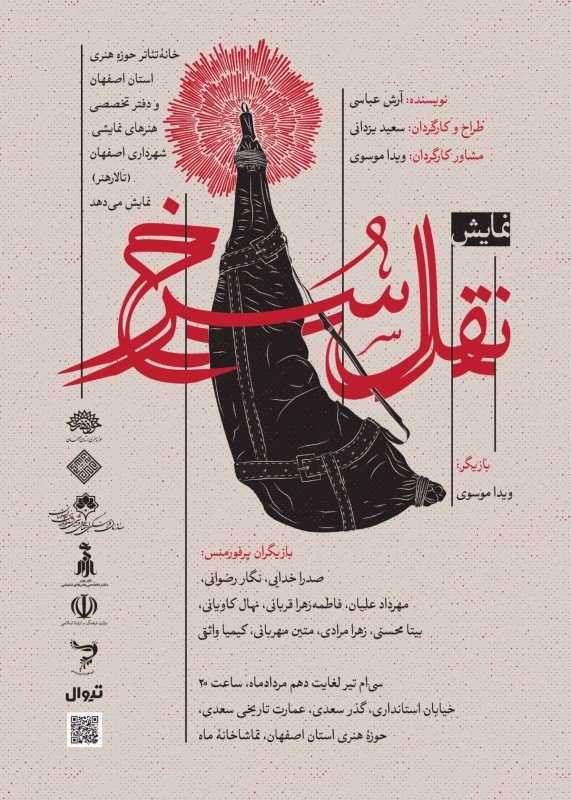 خانه‌تئاتر حوزه هنری
استان اصفهان
و دفتر تخصصی
هنرهای نمایشی
شهرداری اصفهان
(تالارهنر)
نمایش می‌دهد
نویسنده: آرش عباسی
طراح و کارگردان: سعید یزدانی
مشاور کارگردان: ویدا موسوی
نمایش
نقل سرخ
بازیگر:
ویدا موسوی
بازیگران پرفورمنس:
صدرا خدایی، نگار رضوانی،
مهرداد علیان، فاطمه‌زهرا قربانی، نهال کاویانی،
بیتا محسنی، زهرا مرادی، متین مهربانی، کیمیا واثقی
سی‌ام تیر لغایت دهم مردادماه، ساعت ۲۰
خیابان استانداری، گذر سعدی، عمارت تاریخی سعدی،
حوزهٔ هنری استان اصفهان، تماشاخانهٔ ماه
وزارت فرهنگ و ارشاد اسلامی
تیوال